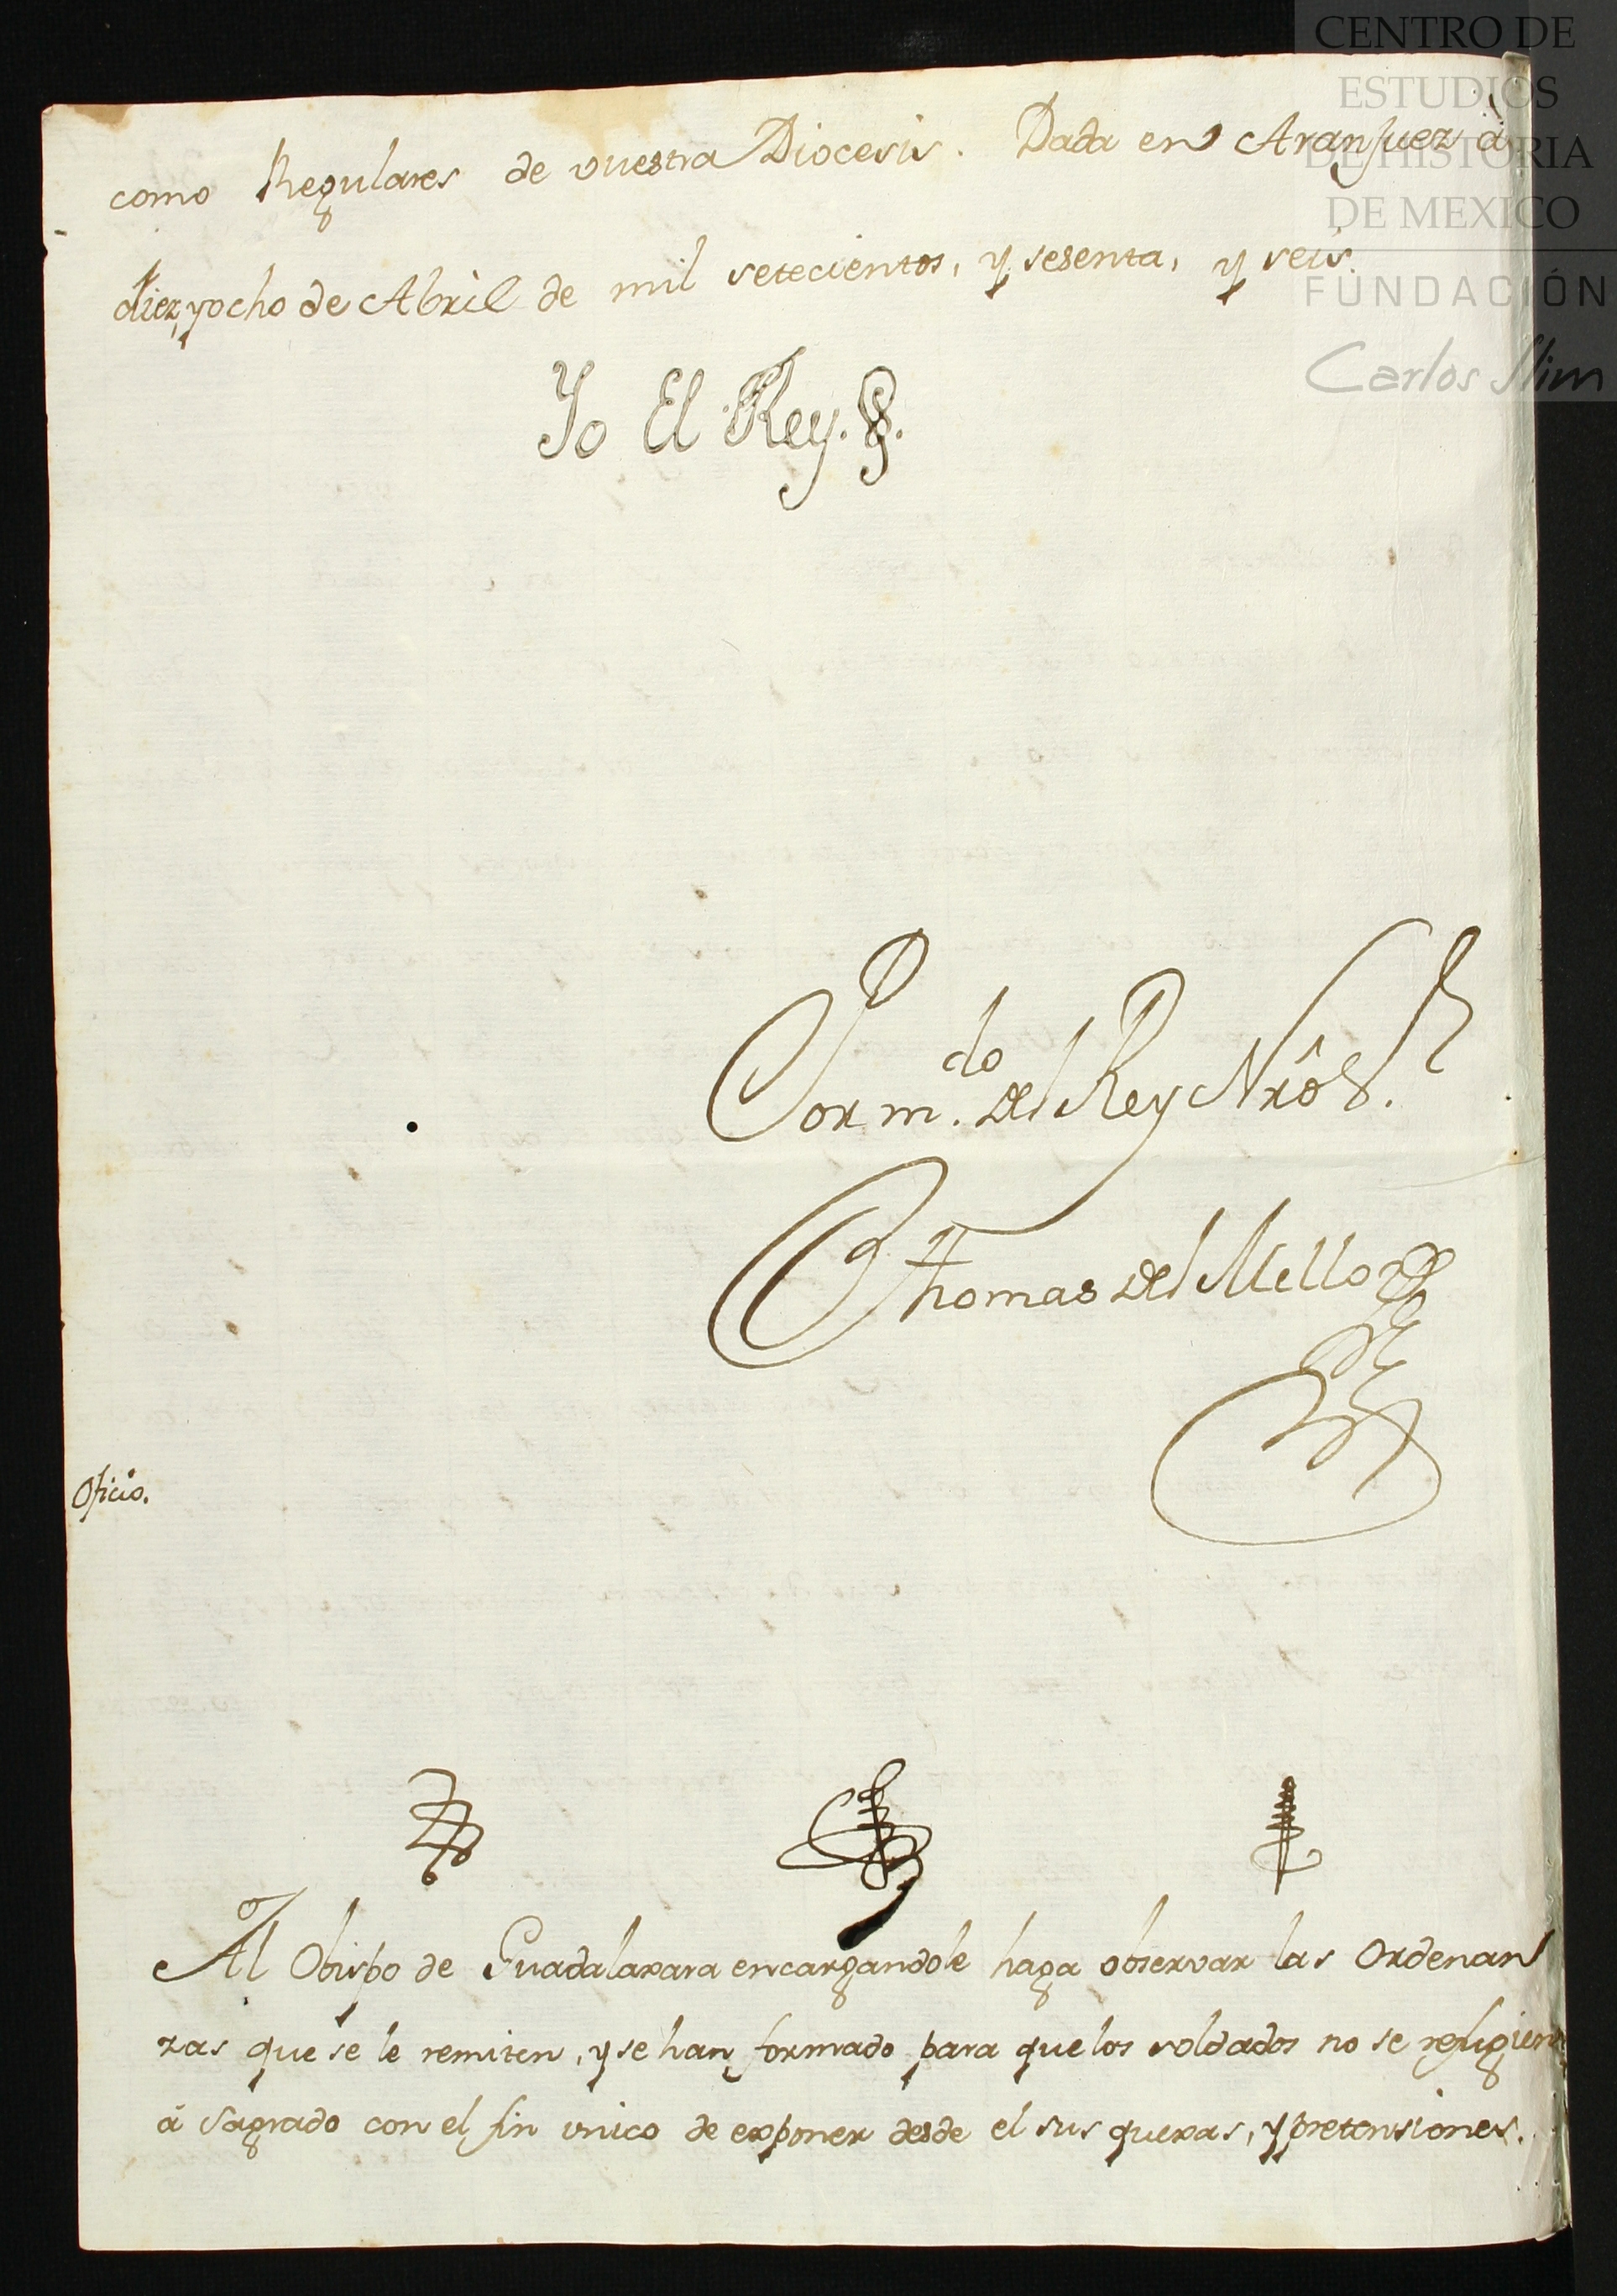 CENTRO DE
ESTUDIOS
DE HISTORIA
DE MEXICO
FUNDACIÓN
Carlos Slim
como Regulares de vuestra Diocesis. Dada en Aranjuez à
diez, y ocho de Abril de mil setecientos, y sesenta, y seis.
Yo El Rey.
Por m.do del Rey Nrô S.r
Thomas del Mello
Oficio.
Al Obispo de Guadalaxara encargandole haga observar las Ordenan
zas que se le remiten, y se han formado para que los soldados no se refugien
à Sagrado con el fin unico de exponer desde el sus quexas, y pretensiones.